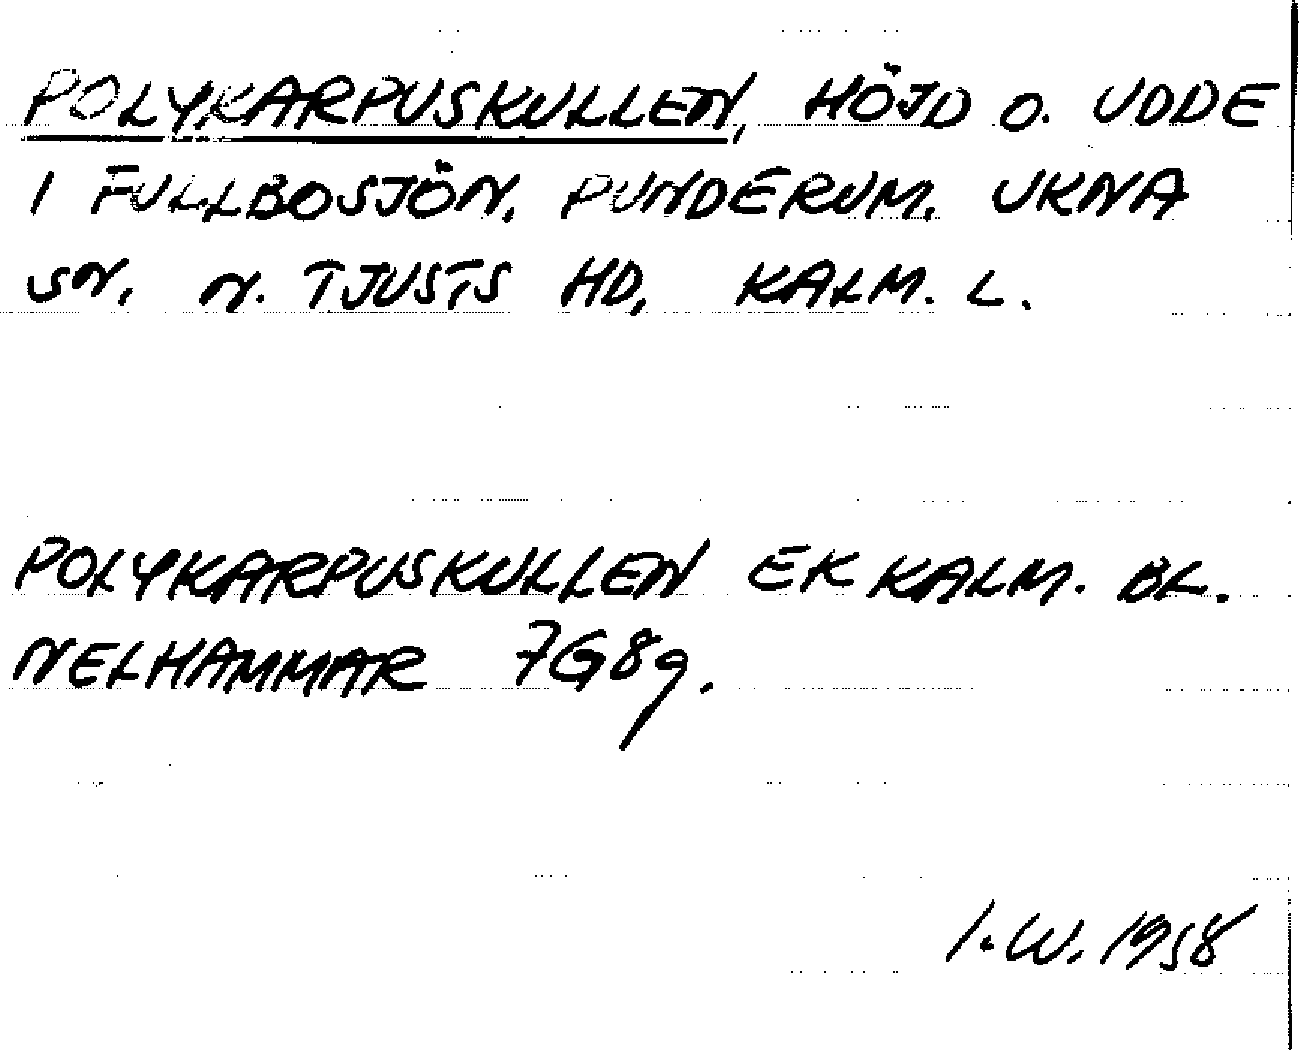 POLYKARPUSKULLEN, HÖJD O. UDDE
I FULLBOSJÖN, PUNDERUM, UKNA
SN, N. TJUSTS HD, KALM. L.
POLYKARPUSKULLEN EK KALM. BL.
NELHAMMAR 7G8g.
I.W. 1958